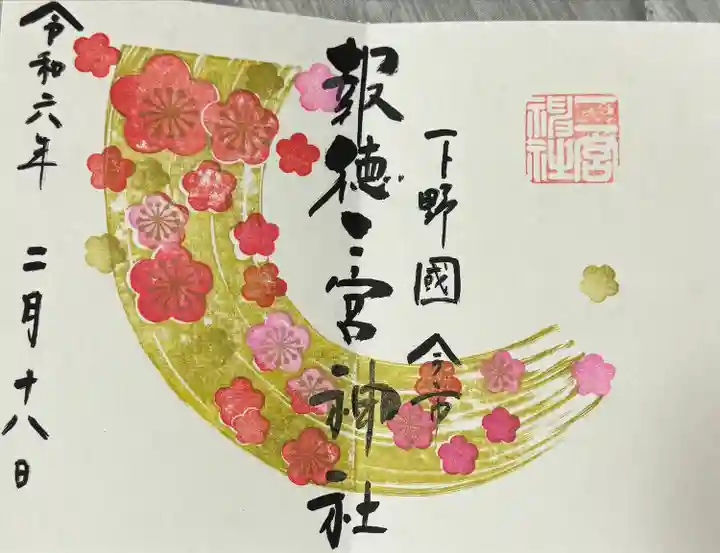 下野國 今市
報徳二宮神社
令和六年 二月十八日
二宮神社